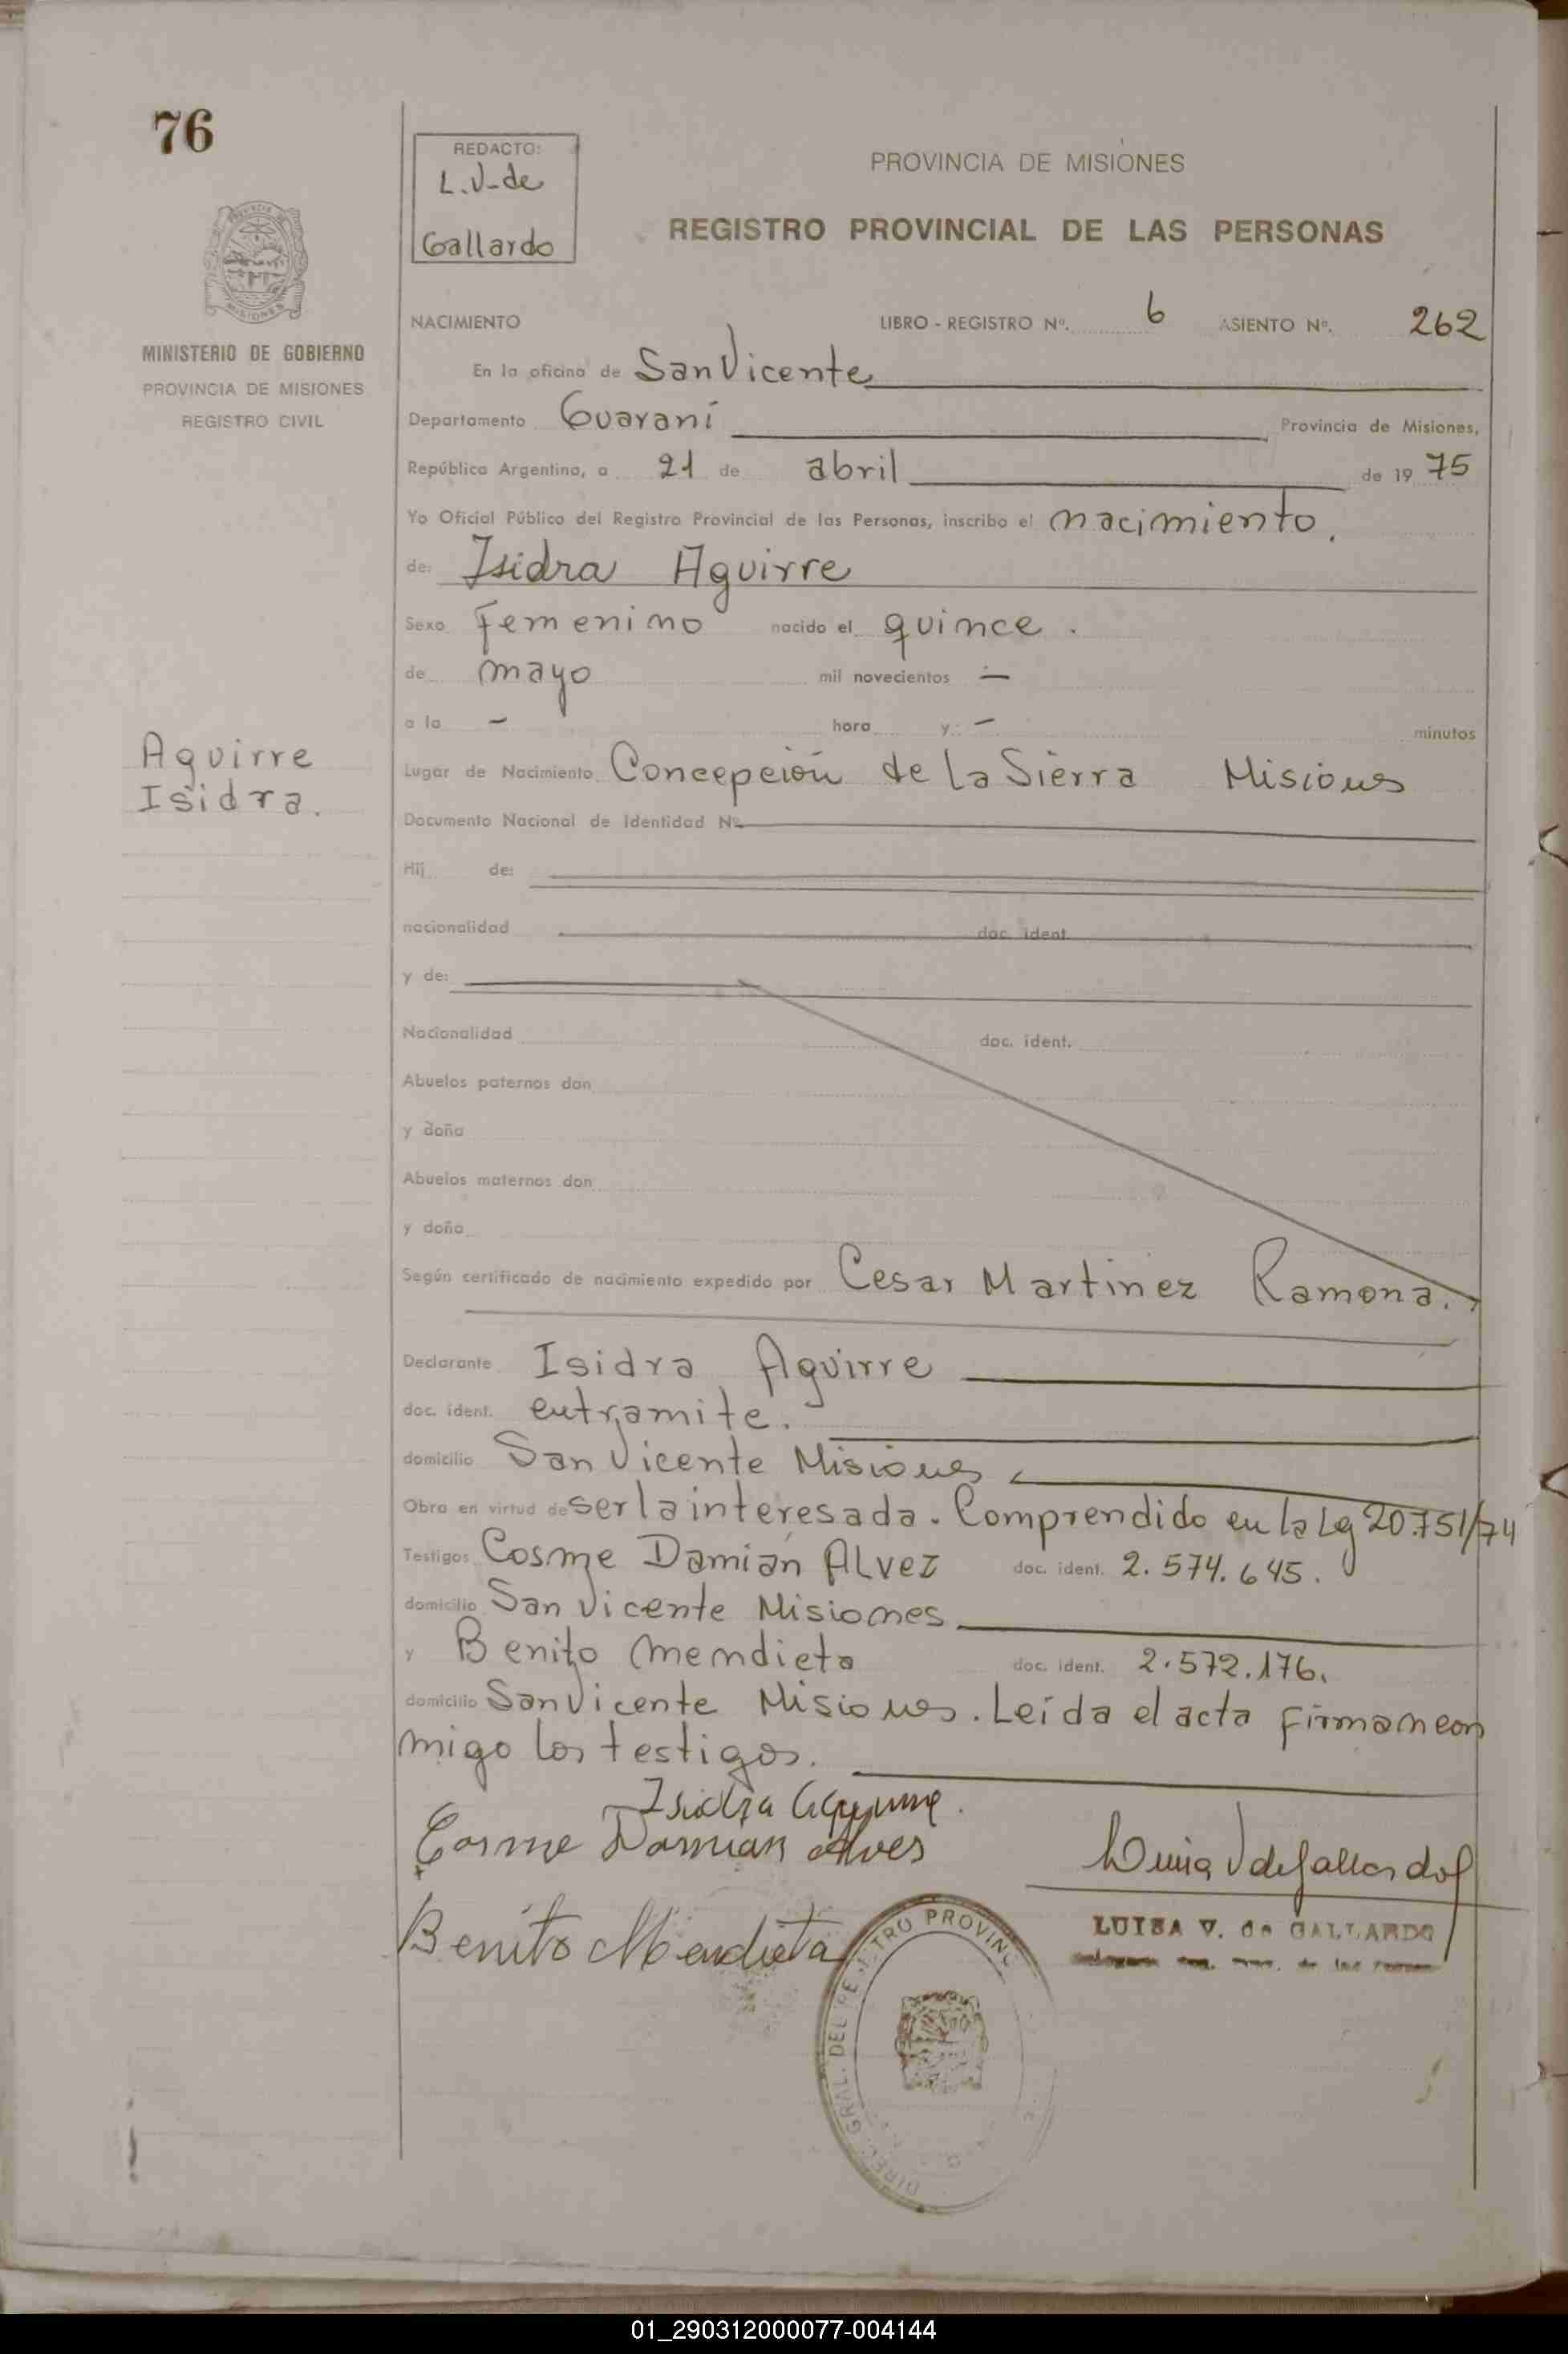 76
REDACTO:
L.V-de
Gallardo
PROVINCIA DE MISIONES
REGISTRO PROVINCIAL DE LAS PERSONAS
MISIONES
MINISTERIO DE GOBIERNO
PROVINCIA DE MISIONES
REGISTRO CIVIL
NACIMIENTO LIBRO - REGISTRO Nº. 6 ASIENTO Nº. 262
En la oficina de San Vicente
Departamento Guaraní Provincia de Misiones,
República Argentina, a 21 de abril de 19 75
Yo Oficial Público del Registro Provincial de las Personas, inscribo el nacimiento.
de: Isidra Aguirre
Sexo Femenino nacido el quince.
de mayo mil novecientos —
a la - hora y - minutos
Aguirre
Isidra.
Lugar de Nacimiento Concepción de La Sierra Misiones
Documento Nacional de Identidad Nº
Hij de:
nacionalidad doc. ident.
y de:
Nacionalidad doc. ident.
Abuelos paternos don
y doña
Abuelos maternos don
y doña
Según certificado de nacimiento expedido por Cesar Martinez Ramona.
Declarante Isidra Aguirre
doc. ident. entramite.
domicilio San Vicente Misiones
Obra en virtud de ser la interesada. Comprendido en la Ley 20.751/74
Testigos Cosme Damián Alvez doc. ident. 2.574.645.
domicilio San Vicente Misiones
y Benito Mendieta doc. ident. 2.572.176.
domicilio San Vicente Misiones. Leída el acta firman con
migo los testigos.
Isidra Aguirre.
Cosme Damian Alves
Luisa V de Gallardo
Benito Mendieta
LUISA V. de GALLARDO
DIREC. GRAL. DEL REGISTRO PROVINC
01_290312000077-004144